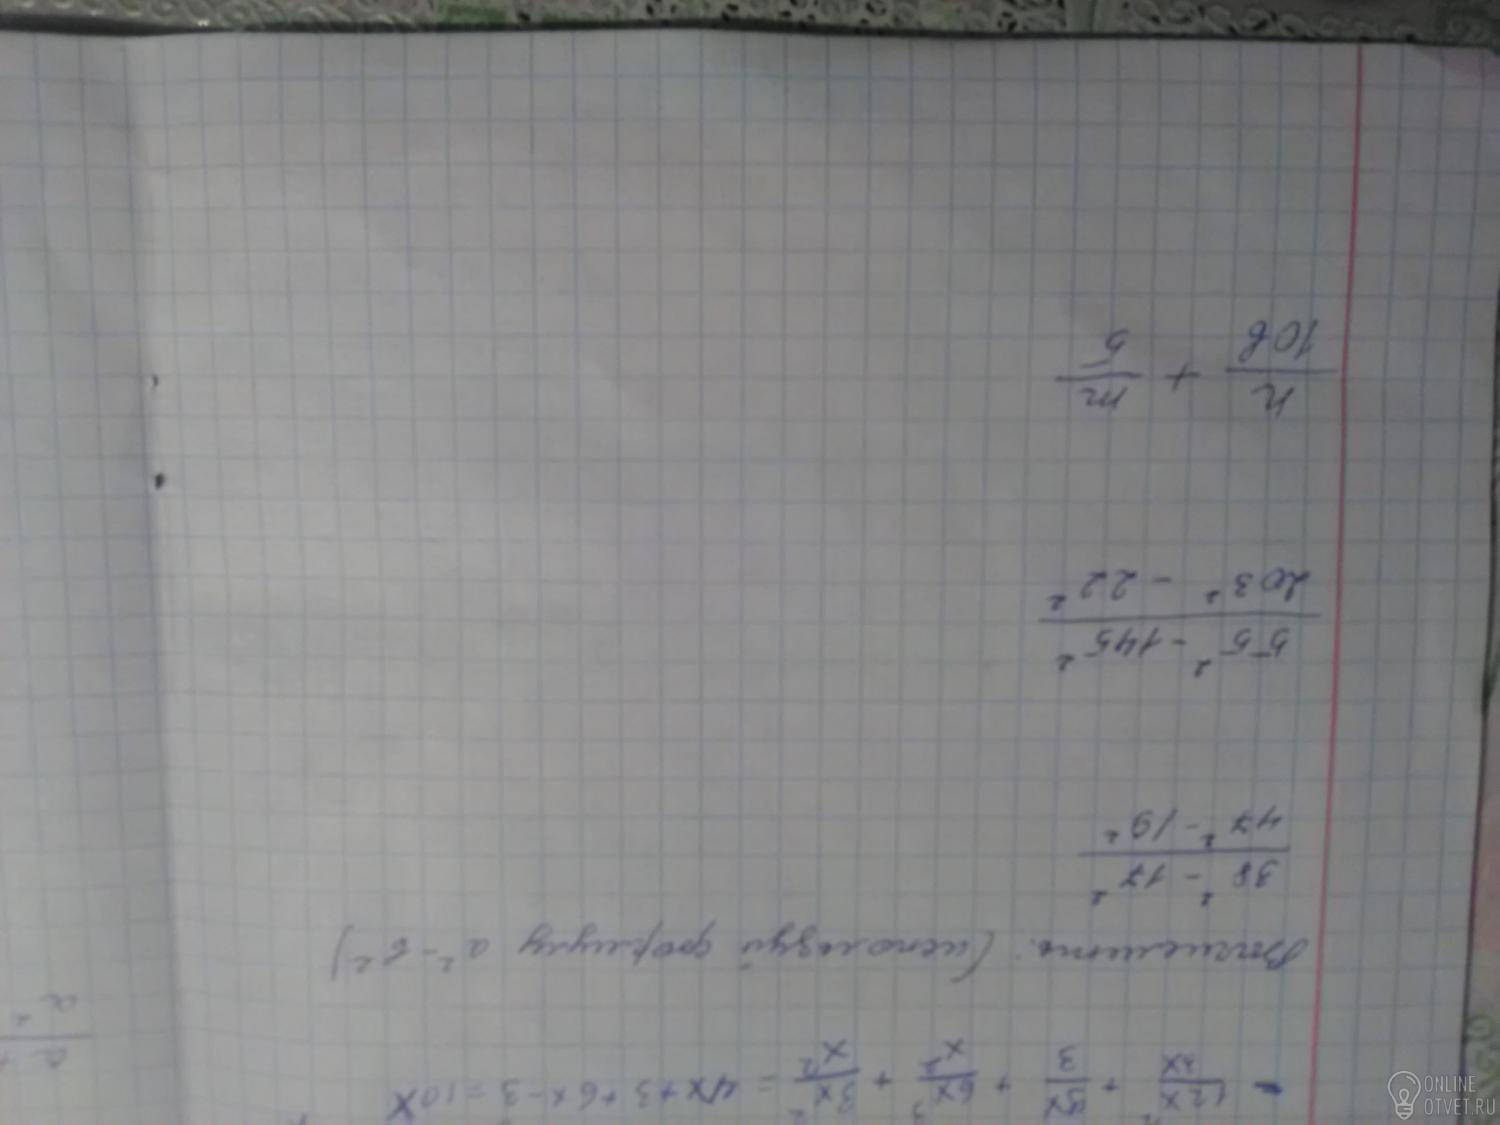 12x² / 3x + 9x / 3 + 6x³ / x² + 3x² / x² = 4x+3+6x-3=10x
Вычислить. (используй формулу a²-b²)
38²-17²
47²-19²
55²-145²
203²-22²
n / 10b + m / 5
a
ONLINE
OTVET.RU